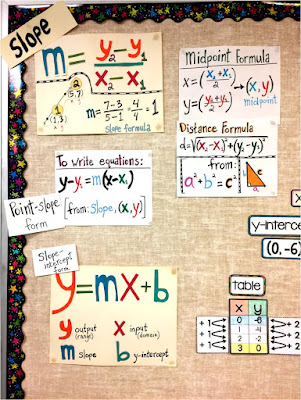 Slope
m = y₂ - y₁
x₂ - x₁
2
(5,7)
1
(1,3)
m = 7-3 = 4 = 1
5-1 4
slope formula
Midpoint Formula
x = (x₂ + x₁) → (x, y)
2
y = (y₂ + y₁) midpoint
2
Distance Formula
d = √(x₂ - x₁)² + (y₂ - y₁)²
from:
a² + b² = c²
c
a
To write equations:
y - y₁ = m(x - x₁)
[from: Slope, (x, y)]
Point-slope
form
Slope-
intercept
form
y = mx + b
y output
(range)
x input
(domain)
m slope
b y-intercept
y-interce
(0, -6)
table
x y
0 -6
1 -4
2 -2
3 0
+1
+1
+1